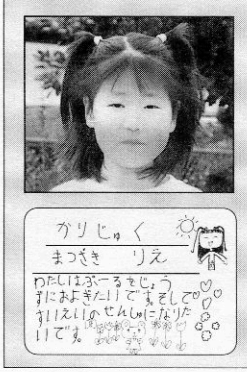 かりじゅく
まつざき りえ
わたしはぷーるをじょう
ずにおよぎたいです。そして
すいえいのせんしゅになりた
いです。